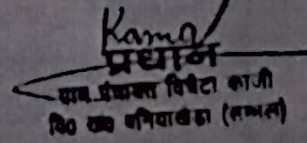 Kamal
प्रधान
ग्राम पंचायत विचैटा काजी
वि० ख० बनियाखेडा (सम्भल)